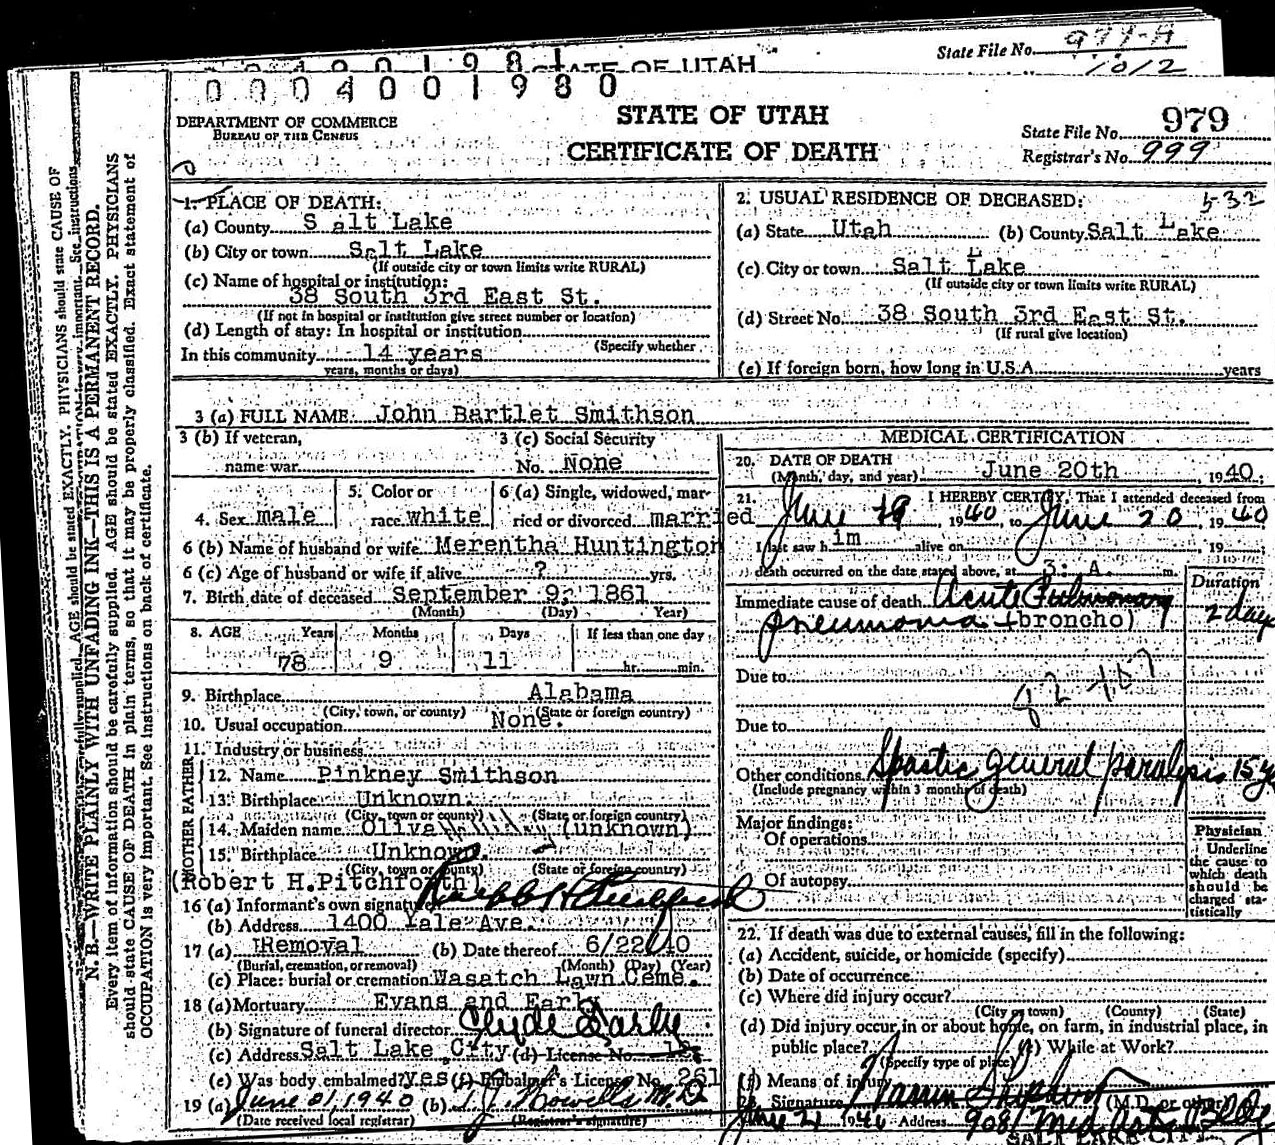 State File No. 977-A
1012
STATE OF UTAH
0 0 0 4 0 0 1 9 8 0
DEPARTMENT OF COMMERCE
BUREAU OF THE CENSUS
STATE OF UTAH
CERTIFICATE OF DEATH
State File No. 979
Registrar's No. 999
N. B.—WRITE PLAINLY WITH UNFADING INK—THIS IS A PERMANENT RECORD.
Every item of information should be carefully supplied. AGE should be stated EXACTLY. PHYSICIANS
should state CAUSE OF DEATH in plain terms, so that it may be properly classified. Exact statement of
OCCUPATION is very important. See instructions on back of certificate.
1. PLACE OF DEATH:
(a) County S alt Lake
(b) City or town Salt Lake
(If outside city or town limits write RURAL)
(c) Name of hospital or institution:
38 South 3rd East St.
(If not in hospital or institution give street number or location)
(d) Length of stay: In hospital or institution
(Specify whether
In this community 14 years
years, months or days)
2. USUAL RESIDENCE OF DECEASED: 532
(a) State Utah (b) County Salt Lake
(c) City or town Salt Lake
(If outside city or town limits write RURAL)
(d) Street No. 38 South 3rd East St.
(If rural give location)
(e) If foreign born, how long in U.S.A. years
3 (a) FULL NAME John Bartlet Smithson
3 (b) If veteran,
name war
3 (c) Social Security
No. None
4. Sex male
5. Color or
race white
6 (a) Single, widowed, mar-
ried or divorced married
6 (b) Name of husband or wife Merentha Huntington
6 (c) Age of husband or wife if alive ? yrs.
7. Birth date of deceased September 9, 1861
(Month) (Day) Year)
8. AGE Years Months Days If less than one day
78 9 11 hr. min.
9. Birthplace Alabama
(City, town, or county) (State or foreign country)
10. Usual occupation None.
11. Industry or business
FATHER
12. Name Pinkney Smithson
13. Birthplace Unknown.
(City, town or county) (State or foreign country)
MOTHER
14. Maiden name Oliva (unknown)
15. Birthplace Unknown.
(City, town or county) (State or foreign country)
(Robert H.Pitchforth)
16 (a) Informant's own signature
(b) Address 1400 Yale Ave.
17 (a) Removal (b) Date thereof 6/22/40
(Burial, cremation, or removal) (Month) (Day) (Year)
(c) Place: burial or cremation Wasatch Lawn Ceme.
18 (a) Mortuary Evans and Early
(b) Signature of funeral director Clyde Early
(c) Address Salt Lake City (d) License No.
(e) Was body embalmed? yes (f) Embalmer's License No. 261
19 (a) June 21, 1940 (b)
(Date received local registrar) (Registrar's signature)
MEDICAL CERTIFICATION
20. DATE OF DEATH
(Month, day, and year) June 20th, 1940.
21. I HEREBY CERTIFY, That I attended deceased from
June 19, 1940, to June 20, 1940
I last saw h im alive on , 19 ;
death occurred on the date stated above, at 3: A. m.
Duration
Immediate cause of death Acute Pulmonary 2 days
pneumonia (broncho)
Due to
Due to
Other conditions Spastic general paralysis 15 y
(Include pregnancy within 3 months of death)
Major findings:
Of operations
Of autopsy
Physician
Underline
the cause to
which death
should be
charged sta-
tistically
22. If death was due to external causes, fill in the following:
(a) Accident, suicide, or homicide (specify)
(b) Date of occurrence
(c) Where did injury occur?
(City or town) (County) (State)
(d) Did injury occur in or about home, on farm, in industrial place, in
public place? (e) While at Work?
(Specify type of place)
(f) Means of injury
23. Signature (M.D. or other)
June 21 1940 Address